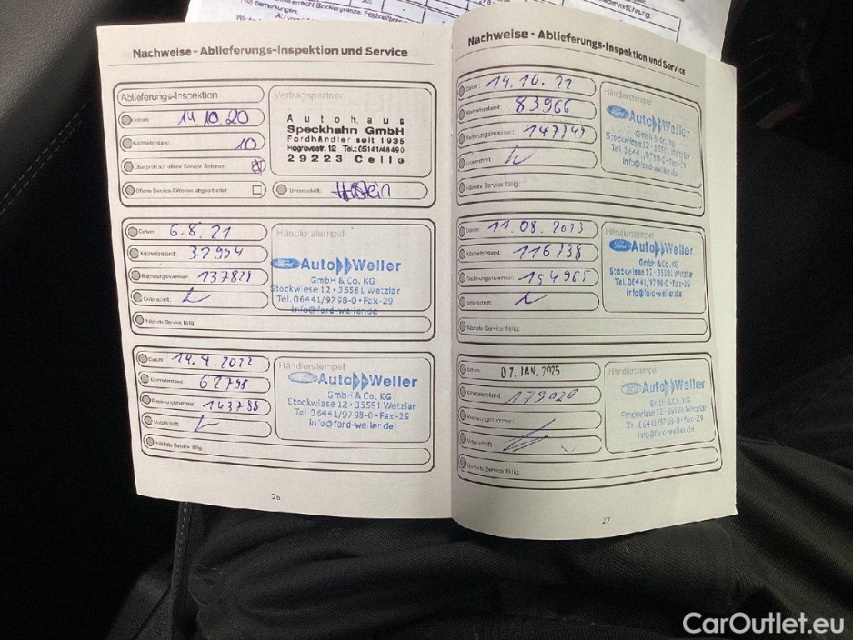 Nachweise - Ablieferungs-Inspektion und Service
Ablieferungs-Inspektion
Datum: 14 10 20
Kilometerstand: 10
Überprüft auf offene Service Aktionen:
Offene Service Aktionen abgearbeitet:
Vertragspartner
Autohaus
Speckhahn GmbH
Fordhändler seit 1935
29223 Celle
Unterschrift:
Datum: 6.8.21
Kilometerstand: 32954
Rechnungsnummer: 137828
Unterschrift:
Nächste Service fällig:
Händlerstempel
Ford Auto Weller
GmbH & Co. KG
Stockwiese 12 · 35581 Wetzlar
Tel. 06441/9798-0 · Fax -29
info@ford-weller.de
Datum: 14.4 2022
Kilometerstand: 62795
Rechnungsnummer: 143788
Unterschrift:
Nächste Service fällig:
Händlerstempel
Auto Weller
GmbH & Co. KG
Stockwiese 12 · 35581 Wetzlar
Tel. 06441/9798-0 · Fax -29
info@ford-weller.de
26
Nachweise - Ablieferungs-Inspektion und Service
Datum: 14.10.22
Kilometerstand: 83966
Rechnungsnummer: 147747
Unterschrift:
Nächste Service fällig:
Händlerstempel
Ford Auto Weller
GmbH & Co. KG
Stockwiese 12 · 35581 Wetzlar
Tel. 06441/9798-0 · Fax -29
info@ford-weller.de
Datum: 11.08.2023
Kilometerstand: 116738
Rechnungsnummer: 154965
Unterschrift:
Nächste Service fällig:
Händlerstempel
Ford Auto Weller
GmbH & Co. KG
Stockwiese 12 · 35581 Wetzlar
Tel. 06441/9798-0 · Fax -29
info@ford-weller.de
Datum: 07. JAN. 2025
Kilometerstand:
Rechnungsnummer:
Unterschrift:
Nächste Service fällig:
Händlerstempel
Auto Weller
GmbH & Co. KG
Stockwiese 12 · 35581 Wetzlar
Tel. 06441/9798-0 · Fax -29
info@ford-weller.de
27
CarOutlet.eu